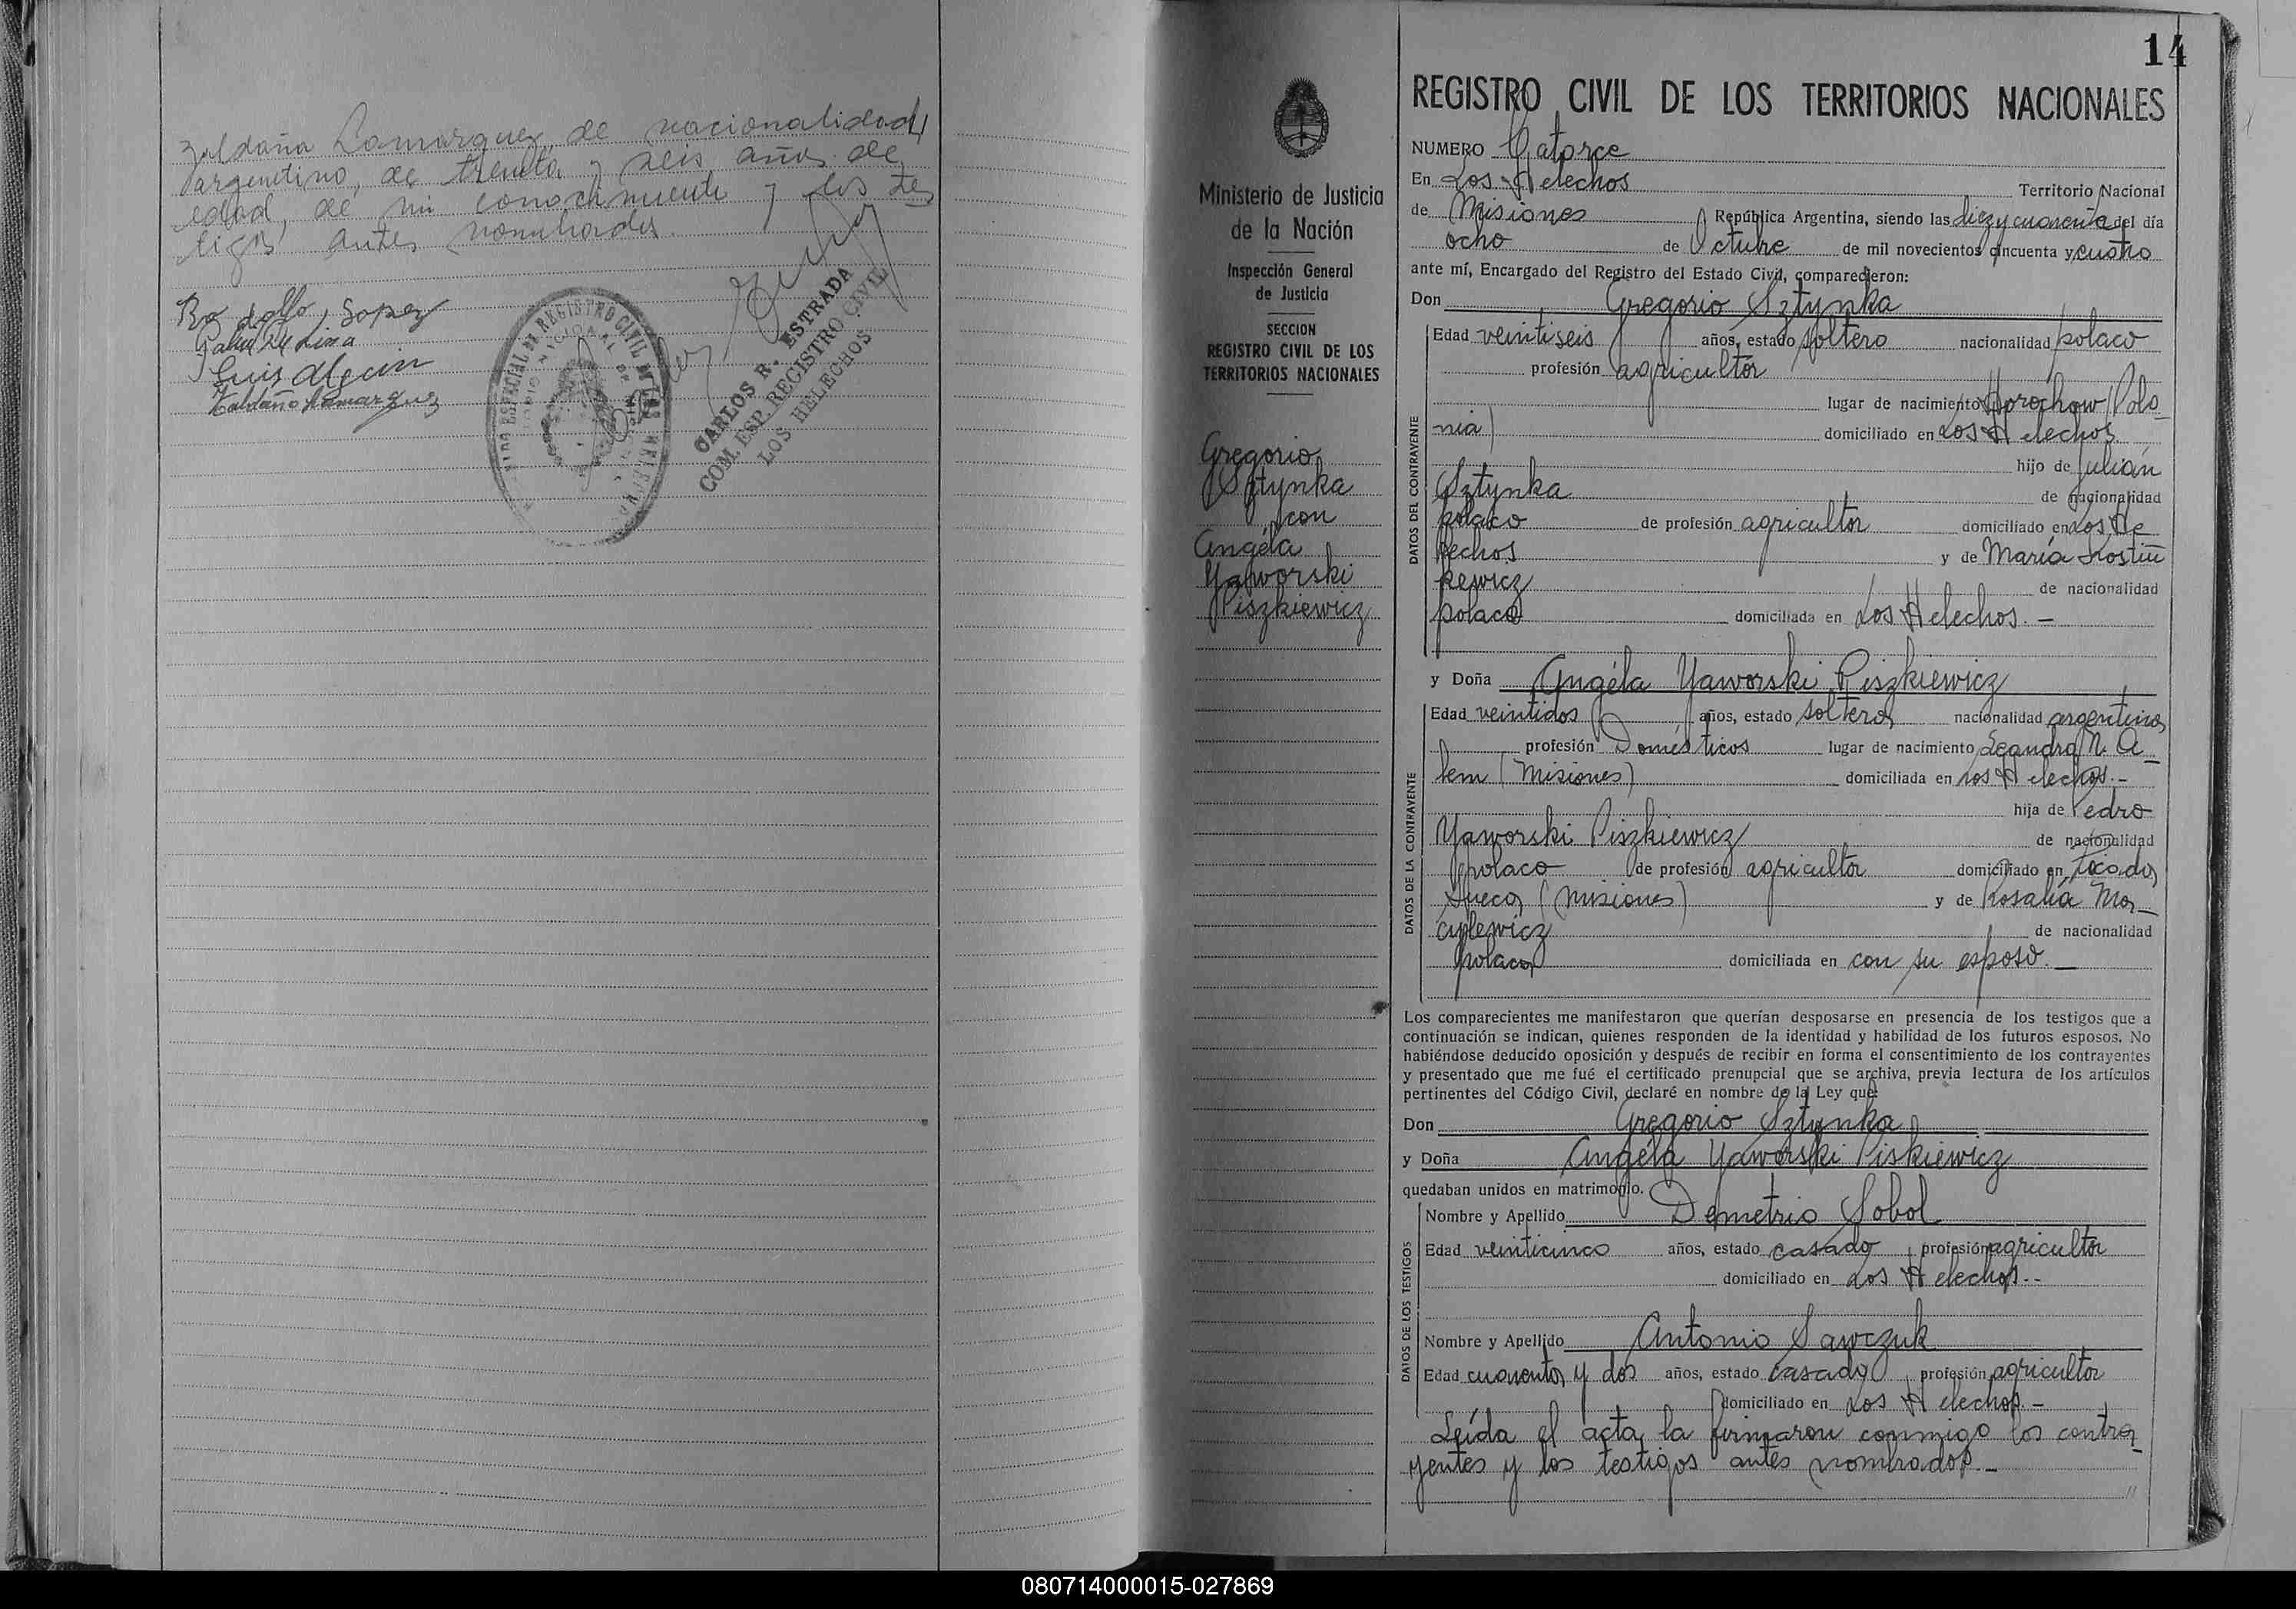 Zaldaña Lamarquez, de nacionalidad
argentino, de treinta y seis años de
edad, de mi conocimiento y los tes
tigos antes nombrados.
Rodolfo Lopez
Luis Alegrin
Zaldaño Lamarquez
REGISTRO CIVIL DE
CARLOS R. ESTRADA
COM. ESP. REGISTRO CIVIL
LOS HELECHOS
14
Ministerio de Justicia
de la Nación
Inspección General
de Justicia
SECCION
REGISTRO CIVIL DE LOS
TERRITORIOS NACIONALES
Gregorio
Sztynka
con
Angéla
Yaworski
Piszkiewicz
REGISTRO CIVIL DE LOS TERRITORIOS NACIONALES
NUMERO Catorce
En Los Helechos Territorio Nacional
de Misiones República Argentina, siendo las diez y cuarenta del día
ocho de Octubre de mil novecientos cincuenta y cuatro
ante mí, Encargado del Registro del Estado Civil, comparecieron:
Don Gregorio Sztynka
DATOS DEL CONTRAYENTE
Edad veintiseis años, estado soltero nacionalidad polaco
profesión agricultor
lugar de nacimiento Horochow (Polo
nia) domiciliado en Los Helechos
hijo de Julián
Sztynka de nacionalidad
polaco de profesión agricultor domiciliado en Los He
lechos y de María Kostiu
kewicz de nacionalidad
polaca domiciliada en Los Helechos. —
y Doña Angéla Yaworski Piszkiewicz
DATOS DE LA CONTRAYENTE
Edad veintidos años, estado soltera nacionalidad argentina
profesión Domésticos lugar de nacimiento Leandro N. A
lem (Misiones) domiciliada en Los Helechos.-
hija de Pedro
Yaworski Piszkiewicz de nacionalidad
polaco de profesión agricultor domiciliado en Picada
Sueca (Misiones) y de Rosalía Ma
cylewicz de nacionalidad
polaca domiciliada en con su esposo. —
Los comparecientes me manifestaron que querían desposarse en presencia de los testigos que a
continuación se indican, quienes responden de la identidad y habilidad de los futuros esposos. No
habiéndose deducido oposición y después de recibir en forma el consentimiento de los contrayentes
y presentado que me fué el certificado prenupcial que se archiva, previa lectura de los artículos
pertinentes del Código Civil, declaré en nombre de la Ley que:
Don Gregorio Sztynka
y Doña Angéla Yaworski Piskiewicz
quedaban unidos en matrimonio.
DATOS DE LOS TESTIGOS
Nombre y Apellido Demetrio Sobol
Edad veinticinco años, estado casado profesión agricultor
domiciliado en Los Helechos.--
Nombre y Apellido Antonio Sawczuk
Edad cuarenta y dos años, estado casado profesión agricultor
domiciliado en Los Helechos.-
Leída el acta la firmaron conmigo los contra
yentes y los testigos antes nombrados.-
080714000015-027869